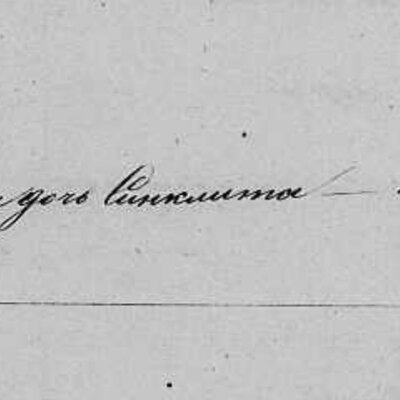 дочь Синклита —